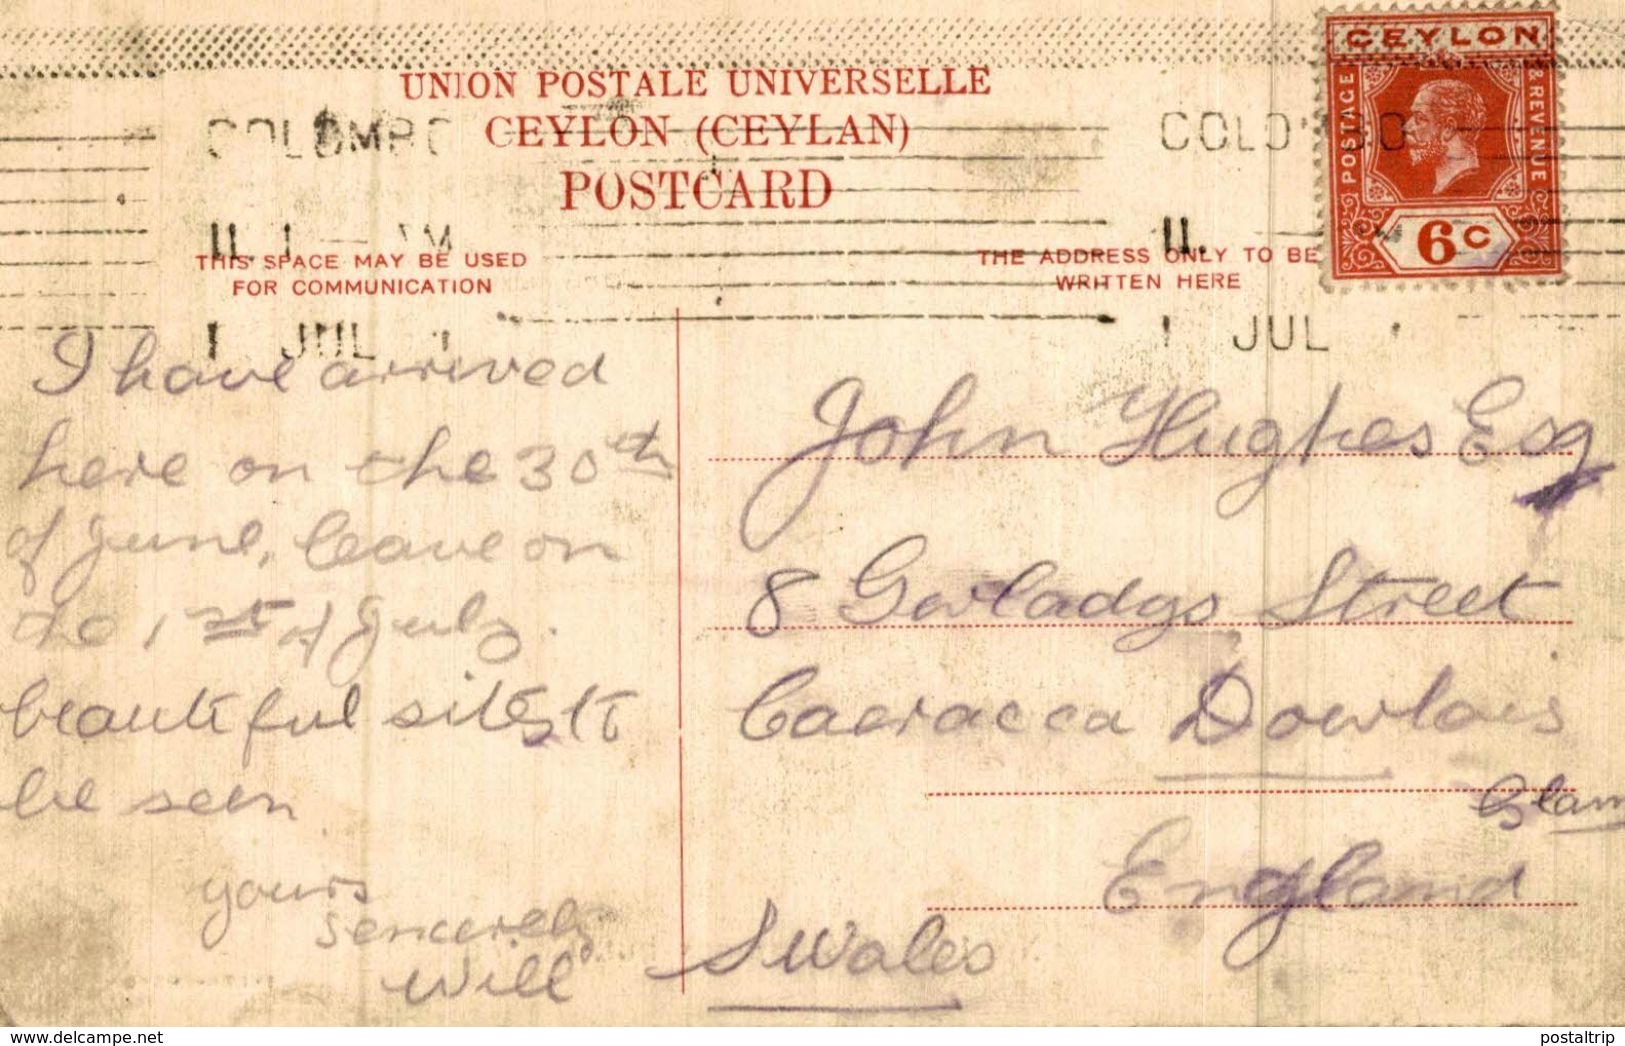 UNION POSTALE UNIVERSELLE
CEYLON (CEYLAN)
POSTCARD
CEYLON
POSTAGE
& REVENUE
6 C
COLOMBO
COLO
11. 1 AM
11.
THIS SPACE MAY BE USED
FOR COMMUNICATION
THE ADDRESS ONLY TO BE
WRITTEN HERE
1 JUL
1 JUL
I have arrived
here on the 30th
of June, leave on
the 1st of July.
beautiful sites to
be seen
yours
sencerely
Will
John Hughes Esq
8 Gwladys Street
Caeracca Dowlais
Glam
England
S Wales
www.delcampe.net
postaltrip